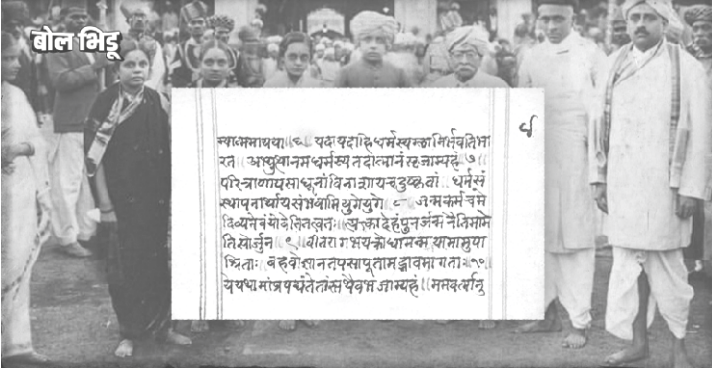 बोल भिडू
म्यात्ममायया॥६॥ यदायदाहिधर्मस्यग्लानिर्भवतिभा
रत॥ अभ्युत्थानमधर्मस्यतदात्मानंसृजाम्यहं॥७॥
परित्राणायसाधूनांविनाशायचदुष्कृतां॥ धर्मसं
स्थापनार्थायसंभवामियुगेयुगे॥८॥ जन्मकर्मचमे
दिव्यमेवंयोवेत्तितत्वतः॥ त्यक्त्वादेहंपुनर्जन्मनैतिमामे
तिसोर्जुन॥९॥ वीतरागभयक्रोधामन्मयामामुपा
श्रिताः बहवोज्ञानतपसापूतामद्भावमागताः॥१०॥
येयथामांप्रपद्यंतेतांस्तथैवभजाम्यहं॥ममवर्त्मानु